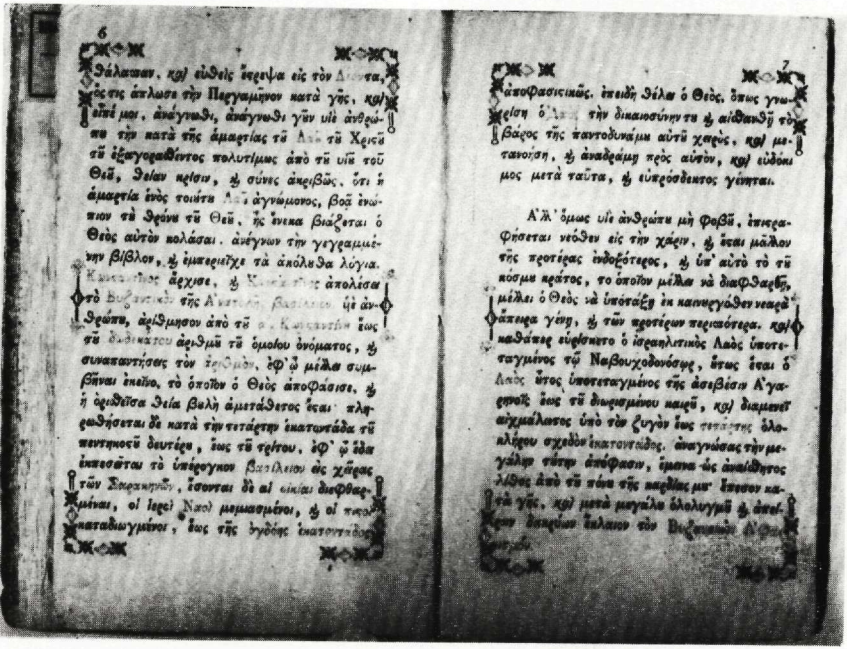 6
θάλασσαν. καὶ εὐθεὶς ἔτρεψα εἰς τὸν Λέοντα,
ὅςτις ἅπλωσε τὴν Περγαμηνὸν κατὰ γῆς, καὶ
εἶπέ μοι, ἀνάγνωθι, ἀνάγνωθι γῦν υἱὲ ἀνθρώ-
πȣ τὴν κατὰ τῆς ἁμαρτίας τȣ͂ Λαȣ͂ τȣ͂ Χριςȣ͂
τȣ͂ ἐξαγορασθέντος πολυτίμως ἀπὸ τȣ͂ υἱȣ͂ τοῦ
Θεȣ͂, θείαν κρίσιν, ϗ σύνες ἀκριβῶς, ὅτι ἡ
ἁμαρτία ἑνὸς τοιȣ́τȣ Λαȣ͂ ἀγνώμονος, βοᾷ ἐνώ-
πιον τȣ͂ θρόνȣ τȣ͂ Θεȣ͂, ἧς ἕνεκα βιάζεται ὁ
Θεὸς αὐτὸν κολάσαι. ἀνέγνων τὴν γεγραμμέ-
νην βίβλον, ϗ ἐμπεριεῖχε τὰ ἀκόλȣθα λόγια.
Κωνςαντῖνος ἄρχισε, ϗ Κωνςαντῖνος ἀπολέσει
τὸ Βυζαντικὸν τῆς Ἀνατολῆς βασίλειον. ὑιὲ ἀν-
θρώπȣ, ἀρίθμησον ἀπὸ τȣ͂ α. Κωνςαντίνȣ ἕως
τȣ͂ δωδεκάτου ἀριθμȣ͂ τȣ͂ ὁμοίου ὀνόματος, ϗ
συναπαντήσεις τὸν ἀριθμὸν, ἐφ' ᾧ μέλλει συμ-
βῆναι ἐκεῖνο, τὸ ὁποῖον ὁ Θεὸς ἀποφάσισε, ϗ
ἡ ὁριθεῖσα θεία βȣλὴ ἀμετάθετος ἔςαι· πλη-
ρωθήσεται δὲ κατὰ τὴν τετάρτην ἑκατοντάδα τȣ͂
πεντηκοςȣ͂ δευτέρȣ, ἕως τȣ͂ τρίτου. ἐφ' ᾧ
ἐκπεσεῖται τὸ ὑπέρογκον βασίλειον εἰς χεῖρας
τῶν Σαρακηνῶν, ἔσονται δὲ αἱ οἰκίαι διεφθαρ-
μέναι, οἱ Ἱεροὶ Ναοὶ μεμιασμένοι, ϗ οἱ πιςοὶ
καταδιωγμένοι, ἕως τῆς ὀγδόης ἑκατοντάδος
7
ἀποφασιςικῶς. ἐπειδὴ θέλει ὁ Θεὸς, ὅπως γνω-
ρίσῃ ὁ Λαὸς τὴν δικαιοσύνην τȣ ϗ αἰσθανθῇ τὸ
βάρος τῆς παντοδυνάμȣ αὑτȣ͂ χειρὸς, καὶ με-
τανοήσῃ, ϗ ἀναδράμῃ πρὸς αὐτὸν, καὶ εὐδόκι
μος μετὰ ταῦτα, ϗ εὐπρόσδεκτος γένηται.
Ἀλλ' ὅμως υἱὲ ἀνθρώπȣ μὴ φοβȣ͂, ἐπιςρα-
φήσεται νεόθεν εἰς τὴν χάριν, ϗ ἔςαι μᾶλλον
τῆς προτέρας ἐνδοξότερος, ϗ ὑπ' αὐτὸ τὸ τȣ͂
κόσμȣ κράτος, τὸ ὁποῖον μέλλει νὰ διαφθαρῇ,
μέλλει ὁ Θεὸς νὰ ὑποτάξῃ ἐκ καινȣργόθεν νεαρὰ
ἄπειρα γένη, ϗ τῶν προτέρων περισσότερα. καὶ
καθάπερ εὑρίσκετο ὁ ἰσραηλιτικὸς Λαὸς ὑποτε-
ταγμένος τῷ Ναβουχοδονόσωρ, ȣ̔́τως ἔςαι ὁ
Λαὸς ȣ̔͂τος ὑποτεταγμένος τῆς ἀσεβέσιν Ἀγα-
ρηνοῖς ἕως τȣ͂ διωρισμένου καιρȣ͂, καὶ διαμενεῖ
αἰχμάλωτος ὑπὸ τὸν ζυγὸν ἕως τετάρτης ὁλο-
κλήρου σχεδὸν ἑκατοντάδος. ἀναγνώσας τὴν με-
γάλην ταύτην ἀπόφασιν, ἔμεινα ὡς ἀναίσθητος
λίθος ἀπὸ τȣ͂ πόνȣ τῆς καρδίας μȣ· ἔπεσον κα-
τὰ γῆς, καὶ μετὰ μεγάλȣ ὀλολυγμȣ͂ ϗ ἀπεί-
ρων δακρύων ἔκλαιον τὸν Βυζαντικὸν